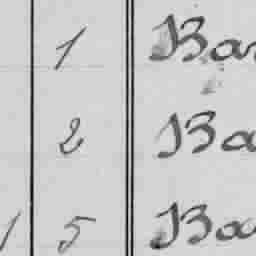 1 Bar
2 Ba
1 5 Ba